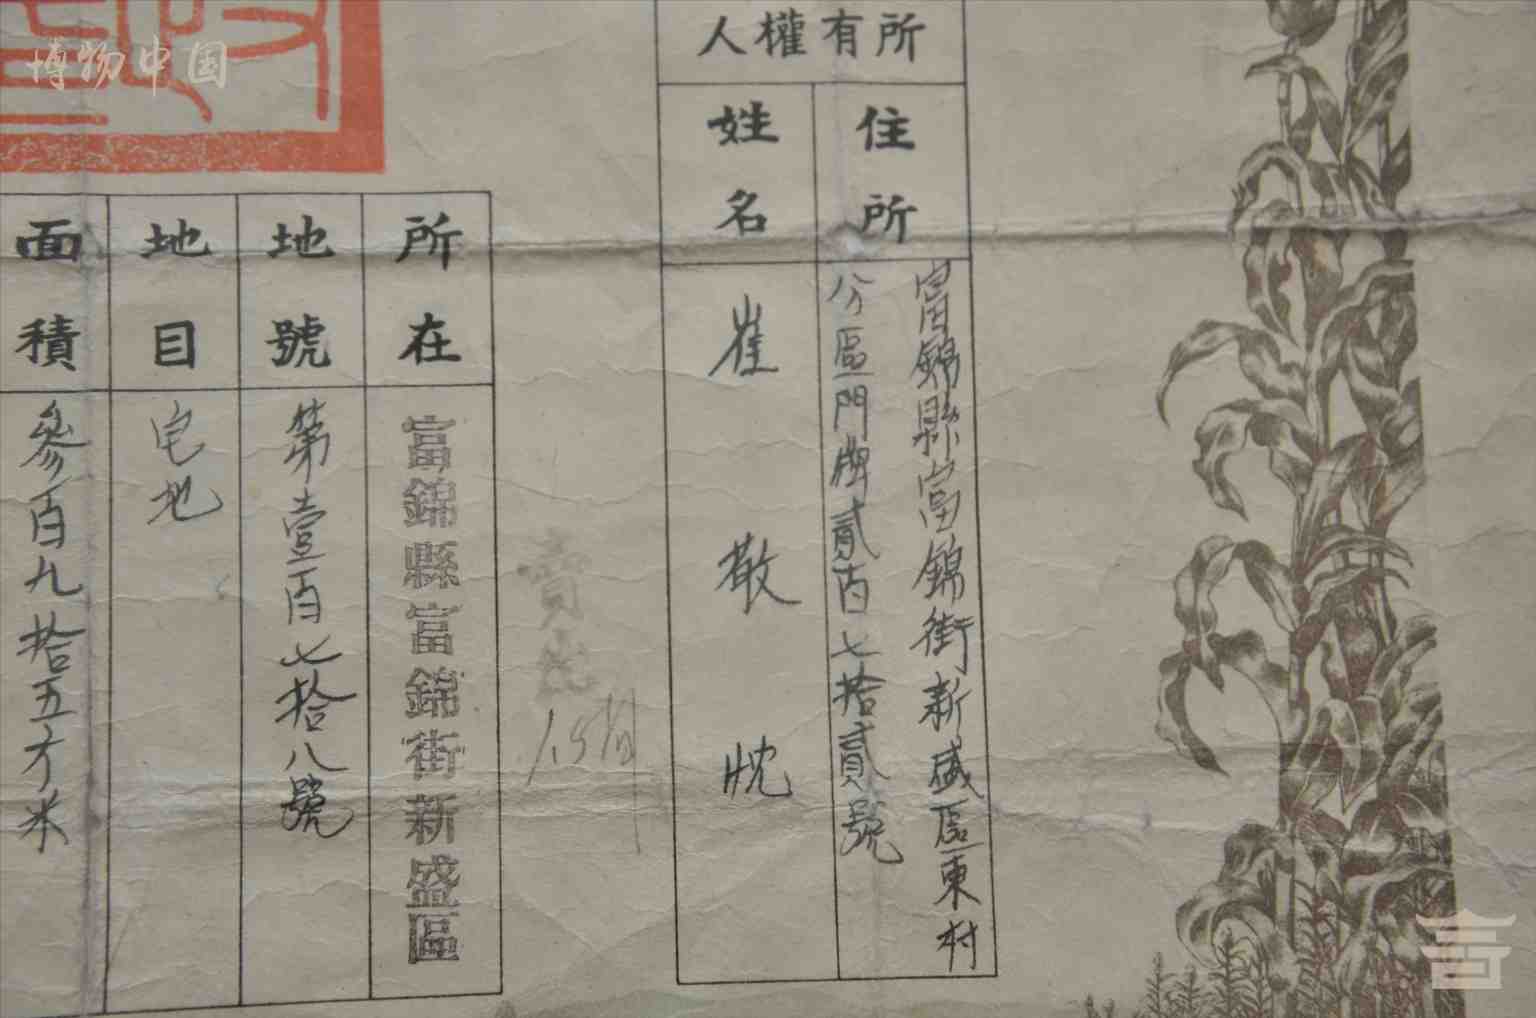 博物中国
所有權人
住所
富錦縣富錦街新盛區東村
分區門牌貳百七拾貳號
姓名
崔敬
所在
富錦縣富錦街新盛區
地號
第壹百七拾八號
地目
宅地
面積
參百九拾五方米